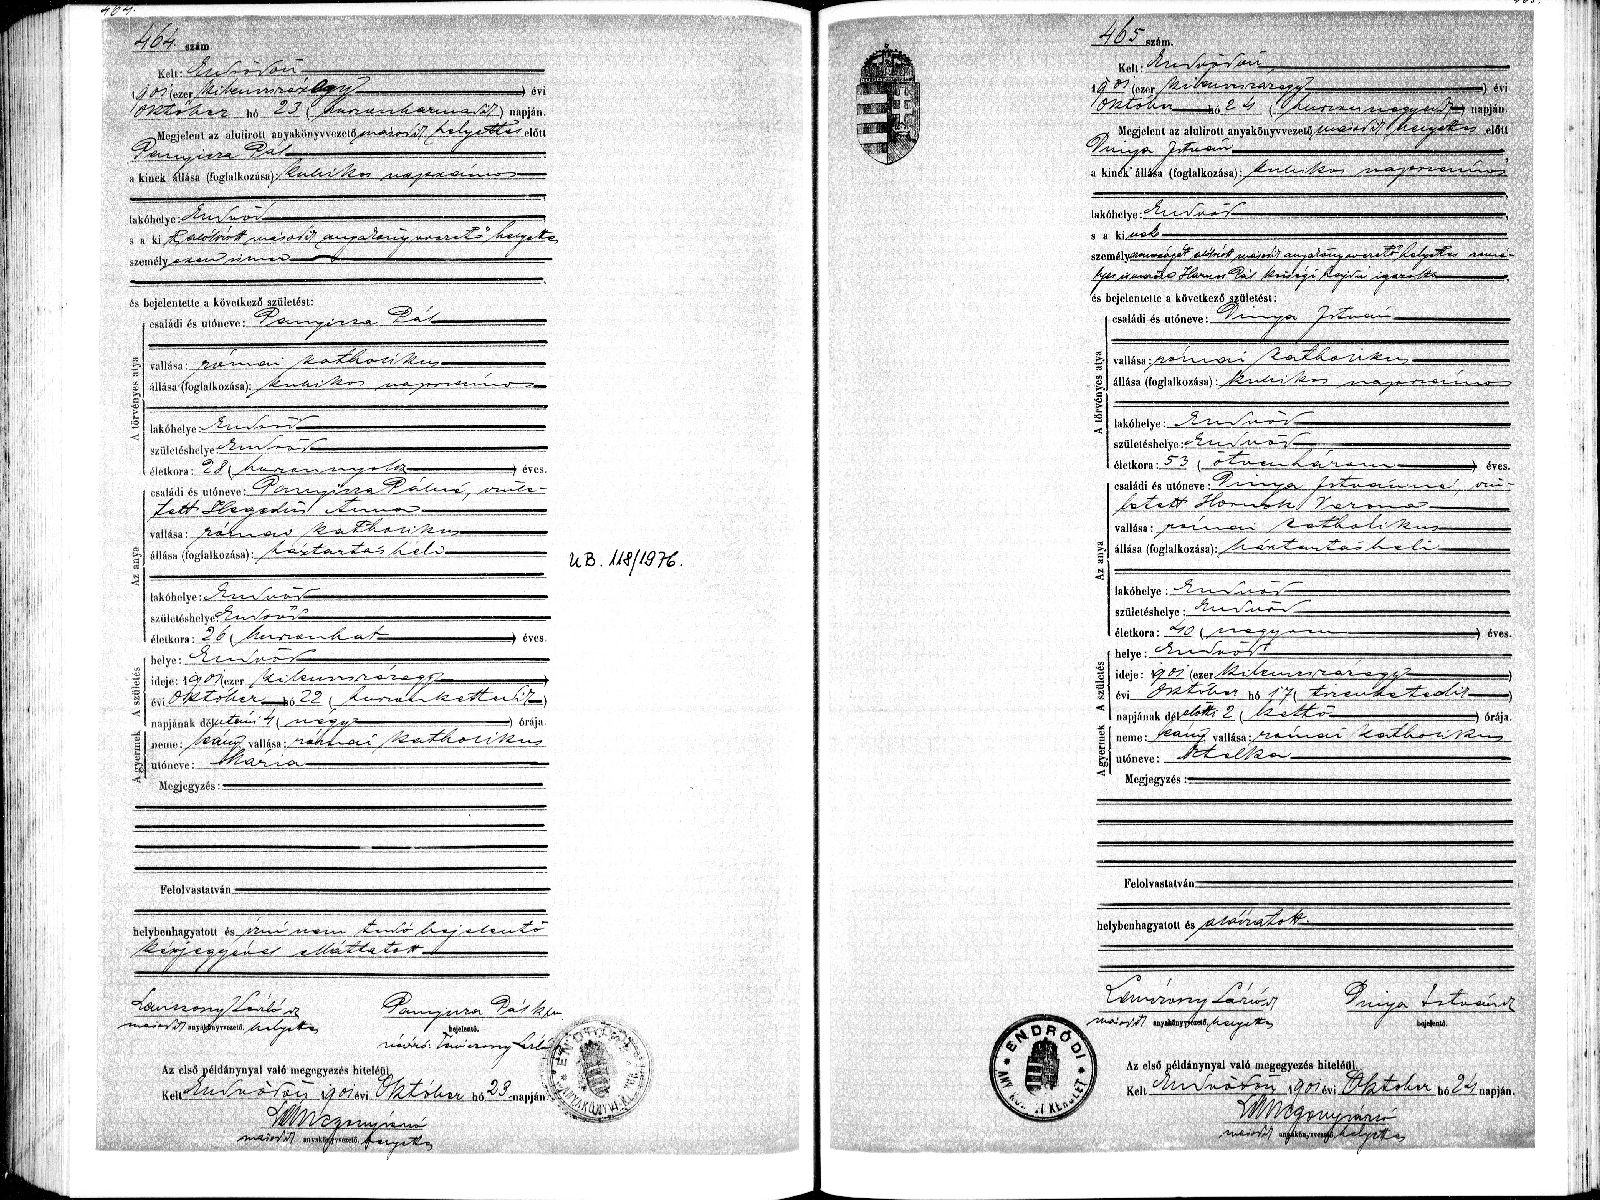 464 szám
Kelt: Endrődön
1901 (ezer kilenczszázegy) évi
október hó 23 (huszonharmadik) napján.
Megjelent az alulirott anyakönyvvezető második helyettes előtt
Pál
a kinek állása (foglalkozása): kubikos napszámos
lakóhelye: Endrőd
s a ki alólírott második anyakönyvvezető helyettes
személyesen ismer
és bejelentette a következő születést:
A törvényes atya
családi és utóneve: Pál
vallása: római katholikus
állása (foglalkozása): kubikos napszámos
lakóhelye: Endrőd
születéshelye: Endrőd
életkora: 28 (huszonnyolcz) éves.
Az anya
családi és utóneve: Pálné, szüle-
tett Hegedüs Anna
vallása: római katholikus
állása (foglalkozása): háztartásbeli
lakóhelye: Endrőd
születéshelye: Endrőd
életkora: 26 (huszonhat) éves.
A születés
helye: Endrőd
ideje: 1901 (ezer kilenczszázegy
évi október hó 22 (huszonkettedik)
napjának délutáni 4 (négy) órája.
A gyermek
neme: leány vallása: római katholikus
utóneve: Mária
Megjegyzés:
Felolvastatván
helybenhagyatott és írni nem tudó bejelentő
kézjegyével elláttatott
második anyakönyvvezető helyettes
Pál
bejelentő.
Az első példánynyal való megegyezés hiteléül
Kelt Endrődön 1901 évi Október hó 23 napján
második anyakönyvvezető. helyettes
UB. 118/1976.
465 szám.
Kelt: Endrődön
1901 (ezer kilenczszázegy) évi
október hó 24 (huszonnegyedik) napján.
Megjelent az alulirott anyakönyvvezető második helyettes előtt
Dinya István
a kinek állása (foglalkozása): kubikos napszámos
lakóhelye: Endrőd
s a kinek
személyazonosságát alólírott második anyakönyvvezető helyettes szemé-
lyes ismerőse Pál községi
és bejelentette a következő születést:
A törvényes atya
családi és utóneve: Dinya István
vallása: római katholikus
állása (foglalkozása): kubikos napszámos
lakóhelye: Endrőd
születéshelye: Endrőd
életkora: 53 (ötvenhárom) éves.
Az anya
családi és utóneve: Dinya Istvánné, szü-
letett Hornok Verona
vallása: római katholikus
állása (foglalkozása): háztartásbeli
lakóhelye: Endrőd
születéshelye: Endrőd
életkora: 40 (negyven) éves.
A születés
helye: Endrőd
ideje: 1901 (ezer kilenczszázegy
évi október hó 17 (tizenhetedik)
napjának délelőtti 2 (kettő) órája.
A gyermek
neme: leány vallása: római katholikus
utóneve: Etelka
Megjegyzés:
Felolvastatván
helybenhagyatott és aláíratott.
második anyakönyvvezető. helyettes
Dinya István
bejelentő.
ENDRŐDI
Az első példánynyal való megegyezés hiteléül
Kelt Endrődön 1901 évi Október hó 24 napján.
második anyakönyvvezető. helyettes